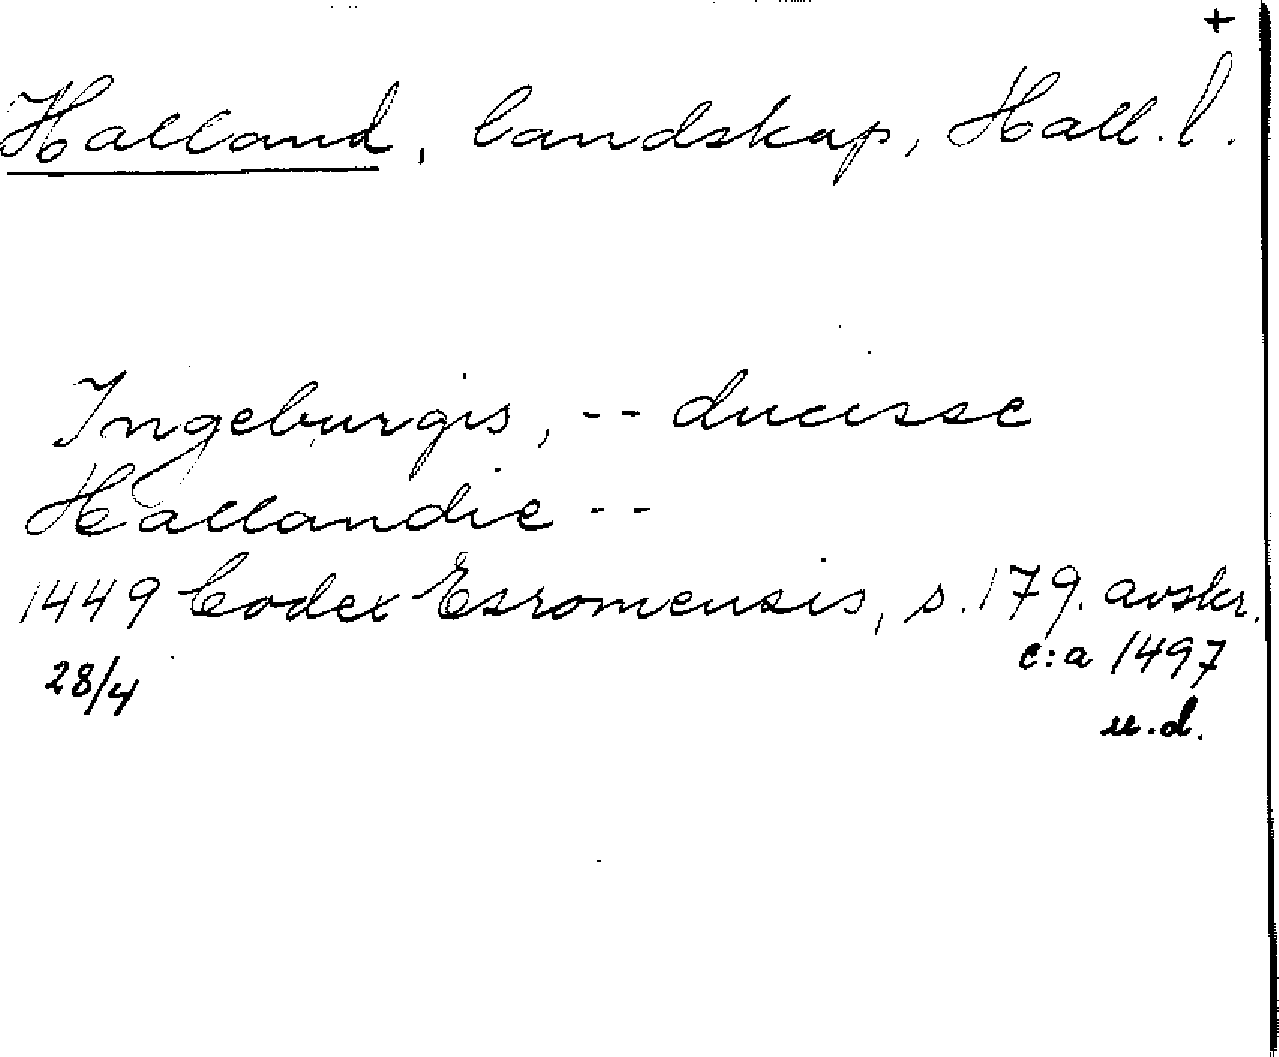 +
Halland, landskap, Hall. l.
Ingeburgis, -- ducisse
Hallandie --
1449 Codex Esromensis, s. 179. avskr.
28/4 c:a 1497
u.d.